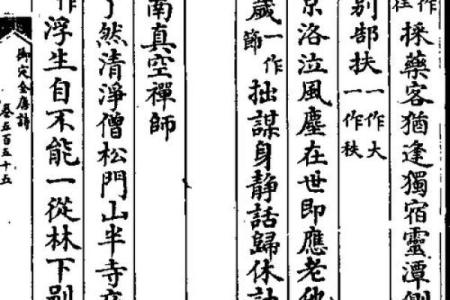 作往採藥客猶逢獨宿靈潭側
別郜扶一作大一作秩
京洛泣風塵在世即應老他
歲一作節拙謀身静話歸休計
南真空禪師
了然清淨僧松門山半寺
作浮生自不能一從林下別
御定全唐詩
卷五百五十五